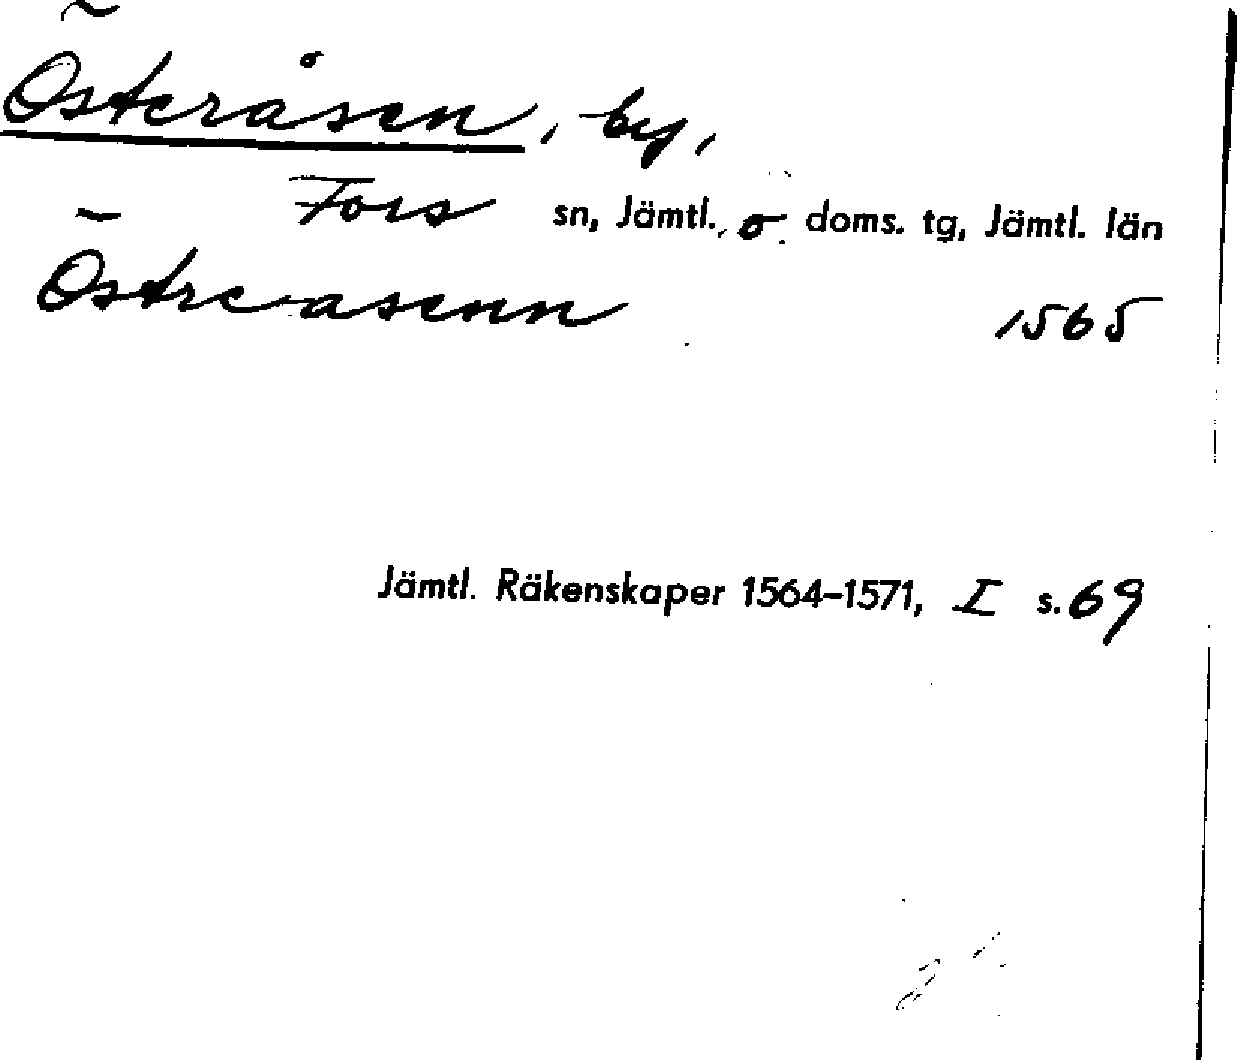 Österåsen, by,
Fors sn, Jämtl., ö. doms. tg, Jämtl. län
Östreasenn 1565
Jämtl. Räkenskaper 1564–1571, I s. 69